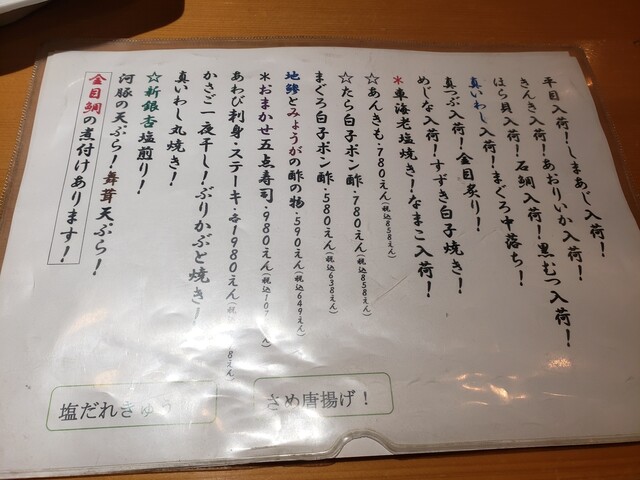 平目入荷！しまあじ入荷！
きんき入荷！あおりいか入荷！
ほら貝入荷！石鯛入荷！黒むつ入荷！
真いわし入荷！まぐろ中落ち！
真つぶ入荷！金目炙り！
めじな入荷！すずき白子焼き！
＊車海老塩焼き！なまこ入荷！
☆あんきも・780えん(税込858えん)
☆たら白子ポン酢・780えん(税込858えん)
まぐろ白子ポン酢・580えん(税込638えん)
地鯵とみょうがの酢の物・590えん(税込649えん)
＊おまかせ五点寿司・980えん(税込107 ん)
あわび刺身・ステーキ・各1980えん(税 8えん
かさご一夜干し！ぶりかぶと焼き！
真いわし丸焼き！
☆新銀杏塩煎り！
河豚の天ぷら！舞茸天ぷら！
金目鯛の煮付けあります！
さめ唐揚げ！
塩だれきゅう